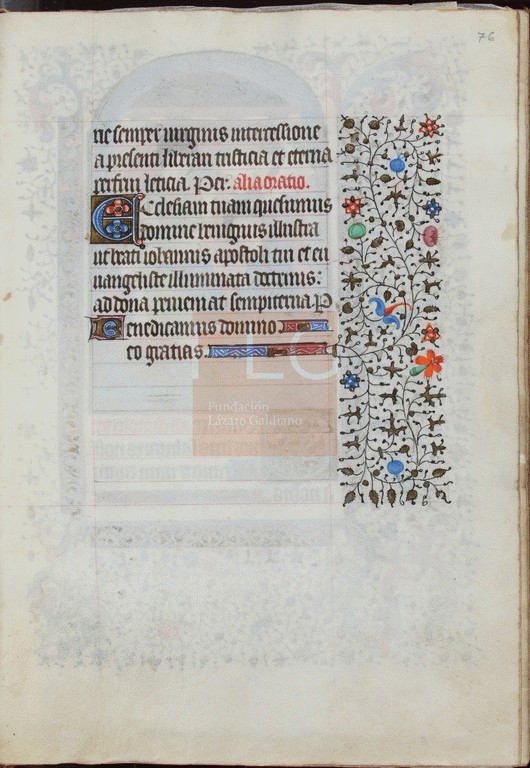 76
rie semper uirginis intercessione
a presenti liberari tristicia et eterna
perfrui leticia. Per. alia oratio.
Ecclesiam tuam quesumus
domine benignus illustra
ut beati iohannis apostoli tui et eu
uangeliste illuminata doctrinis:
ad dona perueniat sempiterna P
Benedicamus domino
eo gratias.
FLG
Fundación
Lázaro Galdiano